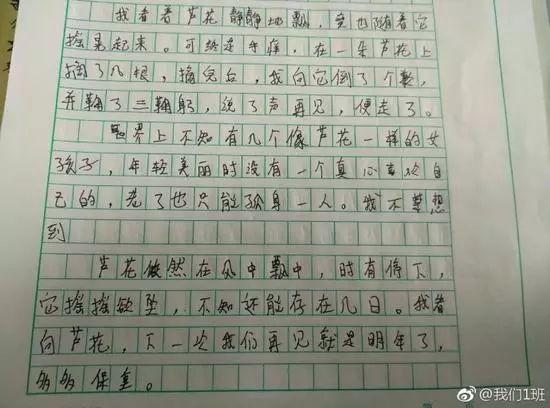 我看着芦花静静地飘，突也随着它
摇晃起来。可终是手痒，在一朵芦花上
摘了几根，摘完后，我向它倒了个歉，
并鞠了三鞠躬，说了声再见，便走了。
世界上不知有几个像芦花一样的女
孩子，年轻美丽时没有一个真心喜欢自
己的，老了也只能孤身一人。我不禁想
到
芦花依然在风中飘中，时有停下，
它摇摇欲坠，不知还能存在几日。我看
向芦花，下一次我们再见就是明年了，
多多保重。
@我们1班